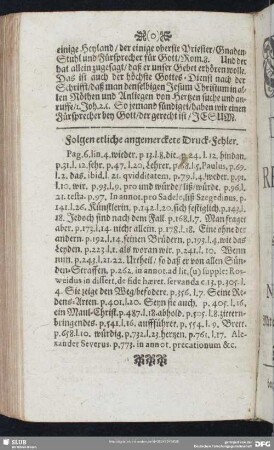 einige Heyland / der einige oberste Priester / Gnaden-
Stuhl und Fürsprecher für Gott / Rom. 8. Und der
hat allein zugesagt / daß er unser Gebet erhören wolle.
Das ist auch der höchste Gottes-Dienst nach der
Schrifft / daß man denselbigen Jesum Christum in al-
len Nöthen und Anliegen von Hertzen suche und an-
ruffe / 1. Joh. 2. 1. So jemand sündiget / haben wir einen
Fürsprecher bey Gott / der gerecht ist / JESUM.
Folgen etliche angemerckete Druck-Fehler.
Pag. 6. lin. 4. wieder. p. 13. l. 8. die. p. 24. l. 12. hindan.
p. 31. l. 12. sehr. p. 47. l. 20. Lehrer. p. 68. l. 5. Paulus. p. 69.
l. 2. das. ibid. l. 21. qvidditatem. p. 79. l. 4. weder. p. 91.
l. 10. wir. p. 93. l. 9. pro und würde / liß / würde. p. 96. l.
21. testa. p. 97. In annot. pro Sadele, liß Szegedinus. p.
141. l. 26. Künstlerin. p. 142. l. 20. sich festiglich. p. 143. l.
18. Jedoch sind nach dem Fall. p. 168. l. 7. Man fraget
aber. p. 173. l. 14. nicht allein. p. 178. l. 18. Eine ohne der
andern. p. 192. l. 14. seinen Brüdern. p. 193. l. 3. wie das
Leyden. p. 223. l. 2. als woran wir. p. 241. l. 10. Wenn
nun. p. 243. l. 21. 22. Urtheil / so daß er von allen Sün-
den-Straffen. p. 262. in annot. ad lit. (u) supplir: Ros-
weidus in dissert. de fide hæret. servanda c. 13. p. 305. l.
4. Sie zeige den Weg / besodere. p. 356. l. 7. Seine Re-
dens-Arten. p. 401. l. 20. Seyn sie auch. p. 405. l. 16.
ein Maul-Christ. p. 487. l. 18. abhold. p. 505. l. 8. zittern-
bringendes. p. 541. l. 16. aufführer. p. 554. l. 9. Brett.
p. 658. l. 10. würdig. p. 732. l. 23. hertzen. p. 761. l. 17. Ale-
xander Severus. p. 773. in annot. precationum &c.
SLUB